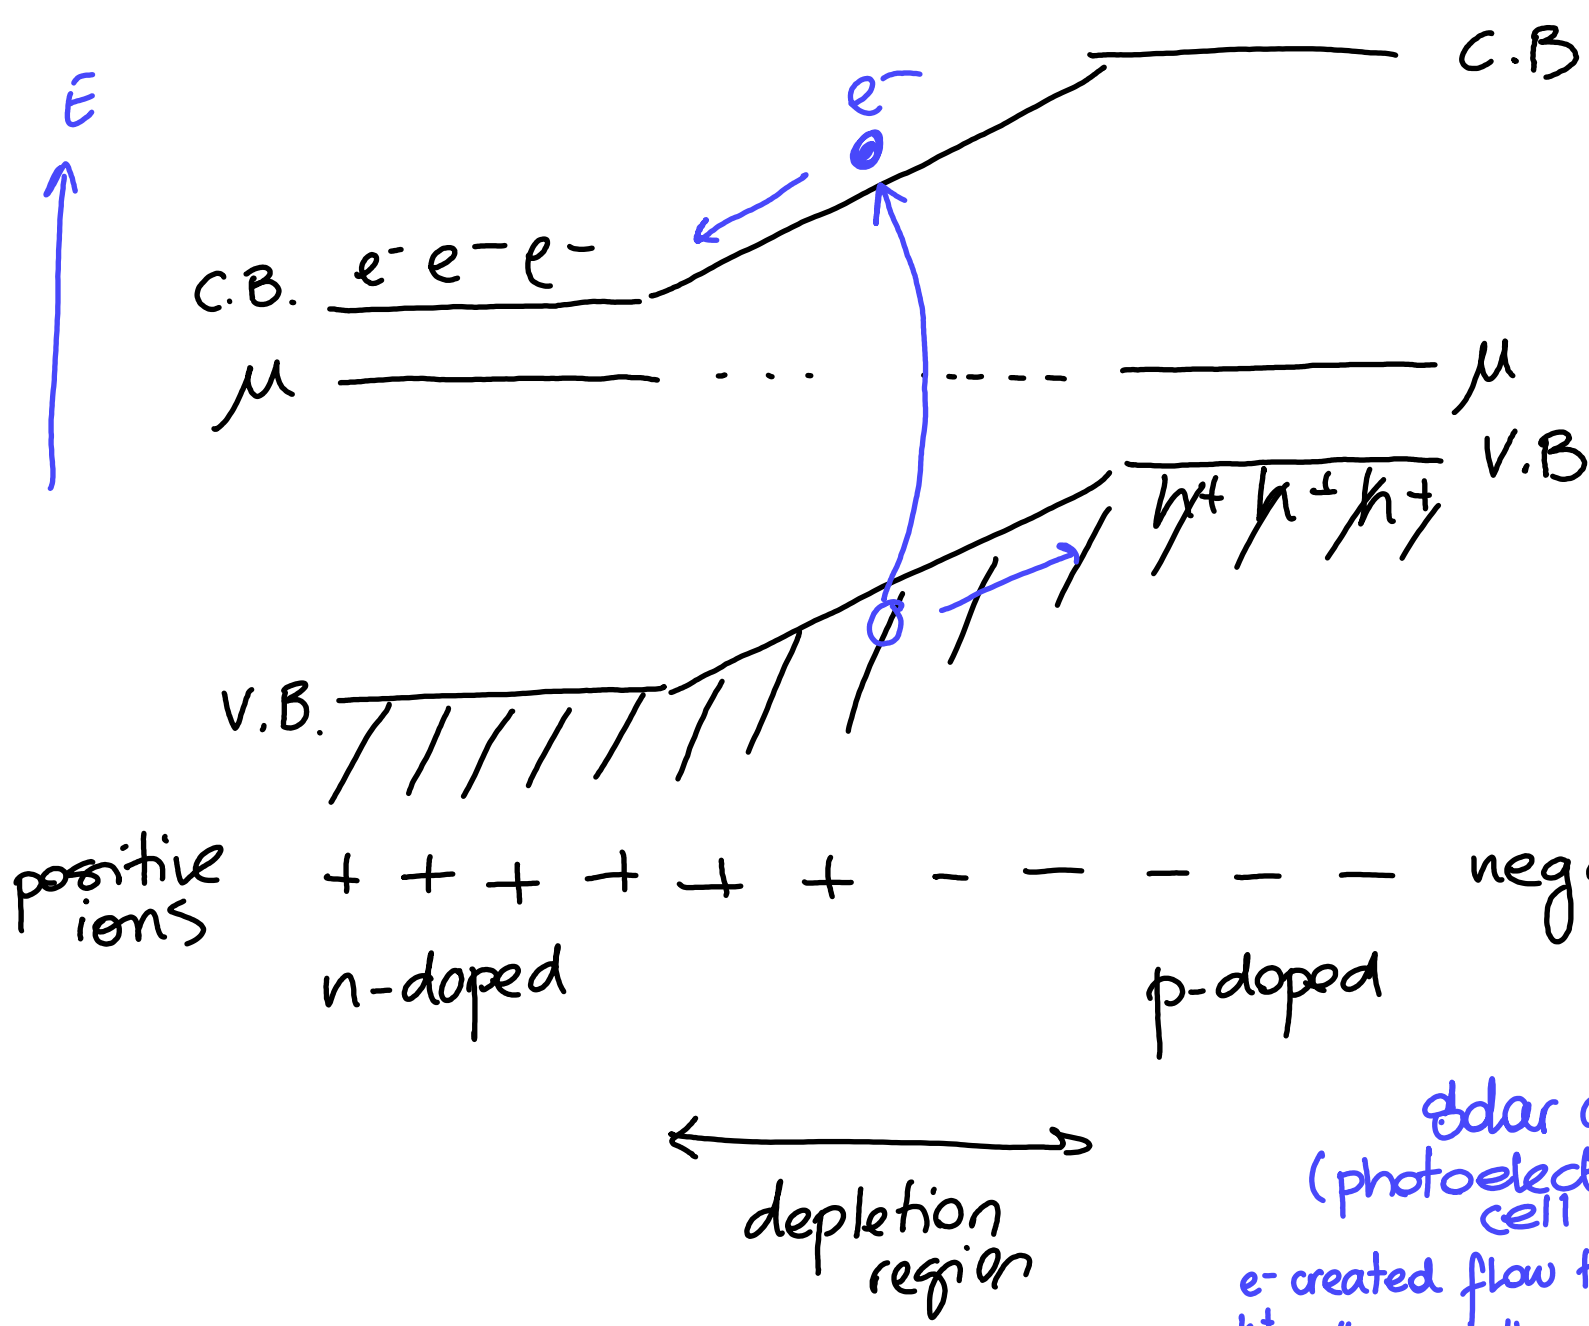 E
e⁻
C.B
C.B. e⁻ e⁻ e⁻
μ
μ
V.B
h⁺ h⁺ h⁺
V.B.
positive
ions
+ + + + + + - - - - -
neg
n-doped
p-doped
depletion
region
solar
cell
e⁻ created flow
h⁺